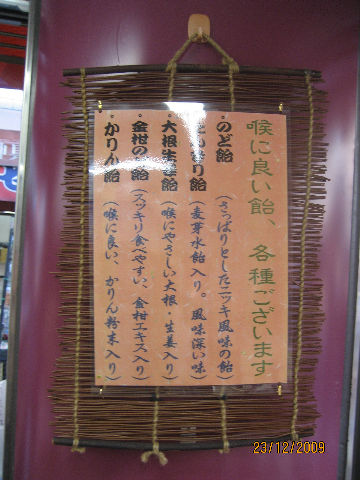 喉に良い飴、各種ございます
・のど飴（さっぱりとしたニッキ風味の飴）
り飴（麦芽水飴入り。風味深い味）
・大根生姜飴（喉にやさしい大根・生姜入り）
・金柑の飴（スッキリ食べやすい、金柑エキス入り）
・かりん飴（喉に良い、かりん粉末入り）
23/12/2009